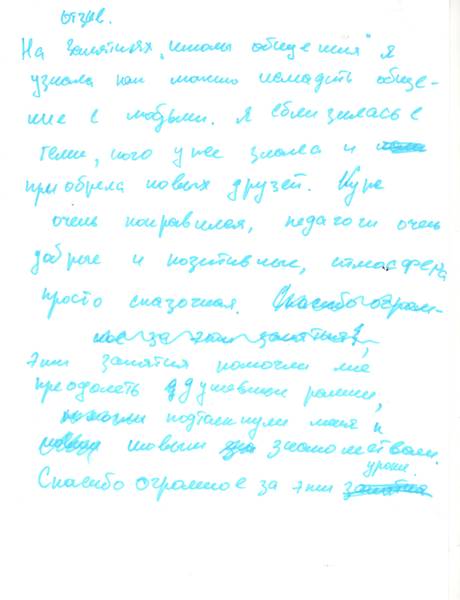 отзыв.
На занятиях „школы общения" я
узнала как можно наладить обще-
ние с людьми. Я сблизилась с
теми, кого уже знала и
приобрела новых друзей. Курс
очень понравился, педагоги очень
добрые и позитивные, атмосфера
просто сказочная. Спасибо огром-
ное за эти занятия!,
эти занятия помогли мне
преодолеть душевные
помогли подтолкнули меня к
новым новым знакомствам.
уроки.
Спасибо огромное за эти занятия